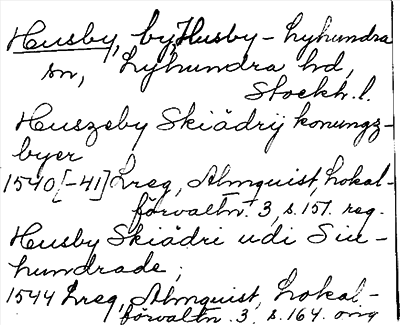 Husby, by, Husby-Lyhundra
sn, Lyhundra hd,
Stockh. l.
Huszeby Skiädrij konungz-
byer
1540[-41] Lreg, Almquist, Lokal-
förvaltn. 3, s. 151. reg.
Husby Skiädri udi Siu-
hundrade,
1544 Lreg, Almquist, Lokal-
förvaltn. 3. s. 164. orig